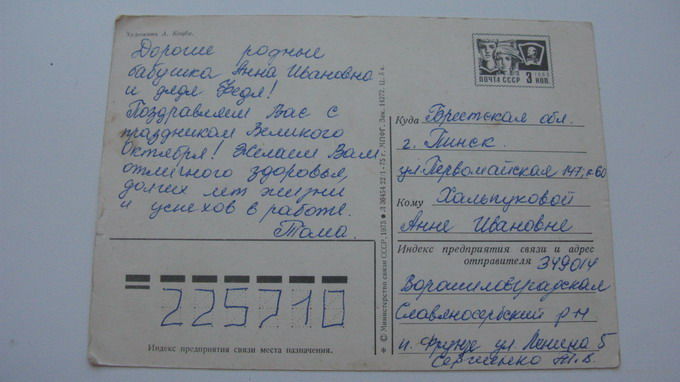 Художник А.
Дорогие родные
бабушка Анна Ивановна
и дядя Федя!
Поздравляем Вас с
праздником Великого
Октября! Желаем Вам
отличного здоровья,
долгих лет жизни
и успехов в работе.
Тома.
225710
Индекс предприятия связи места назначения.
© Министерство связи СССР, 1975
ПОЧТА СССР 3 КОП.
Куда Брестская обл.
г. Пинск.
ул Первомайская 147, к-60
Кому Хальпуковой
Анне Ивановне
Индекс предприятия связи и адрес
отправителя 349014
Ворошиловградская
Славяносербский р-н
п. Фрунзе ул Ленина 5
Сергиенко Т. В.